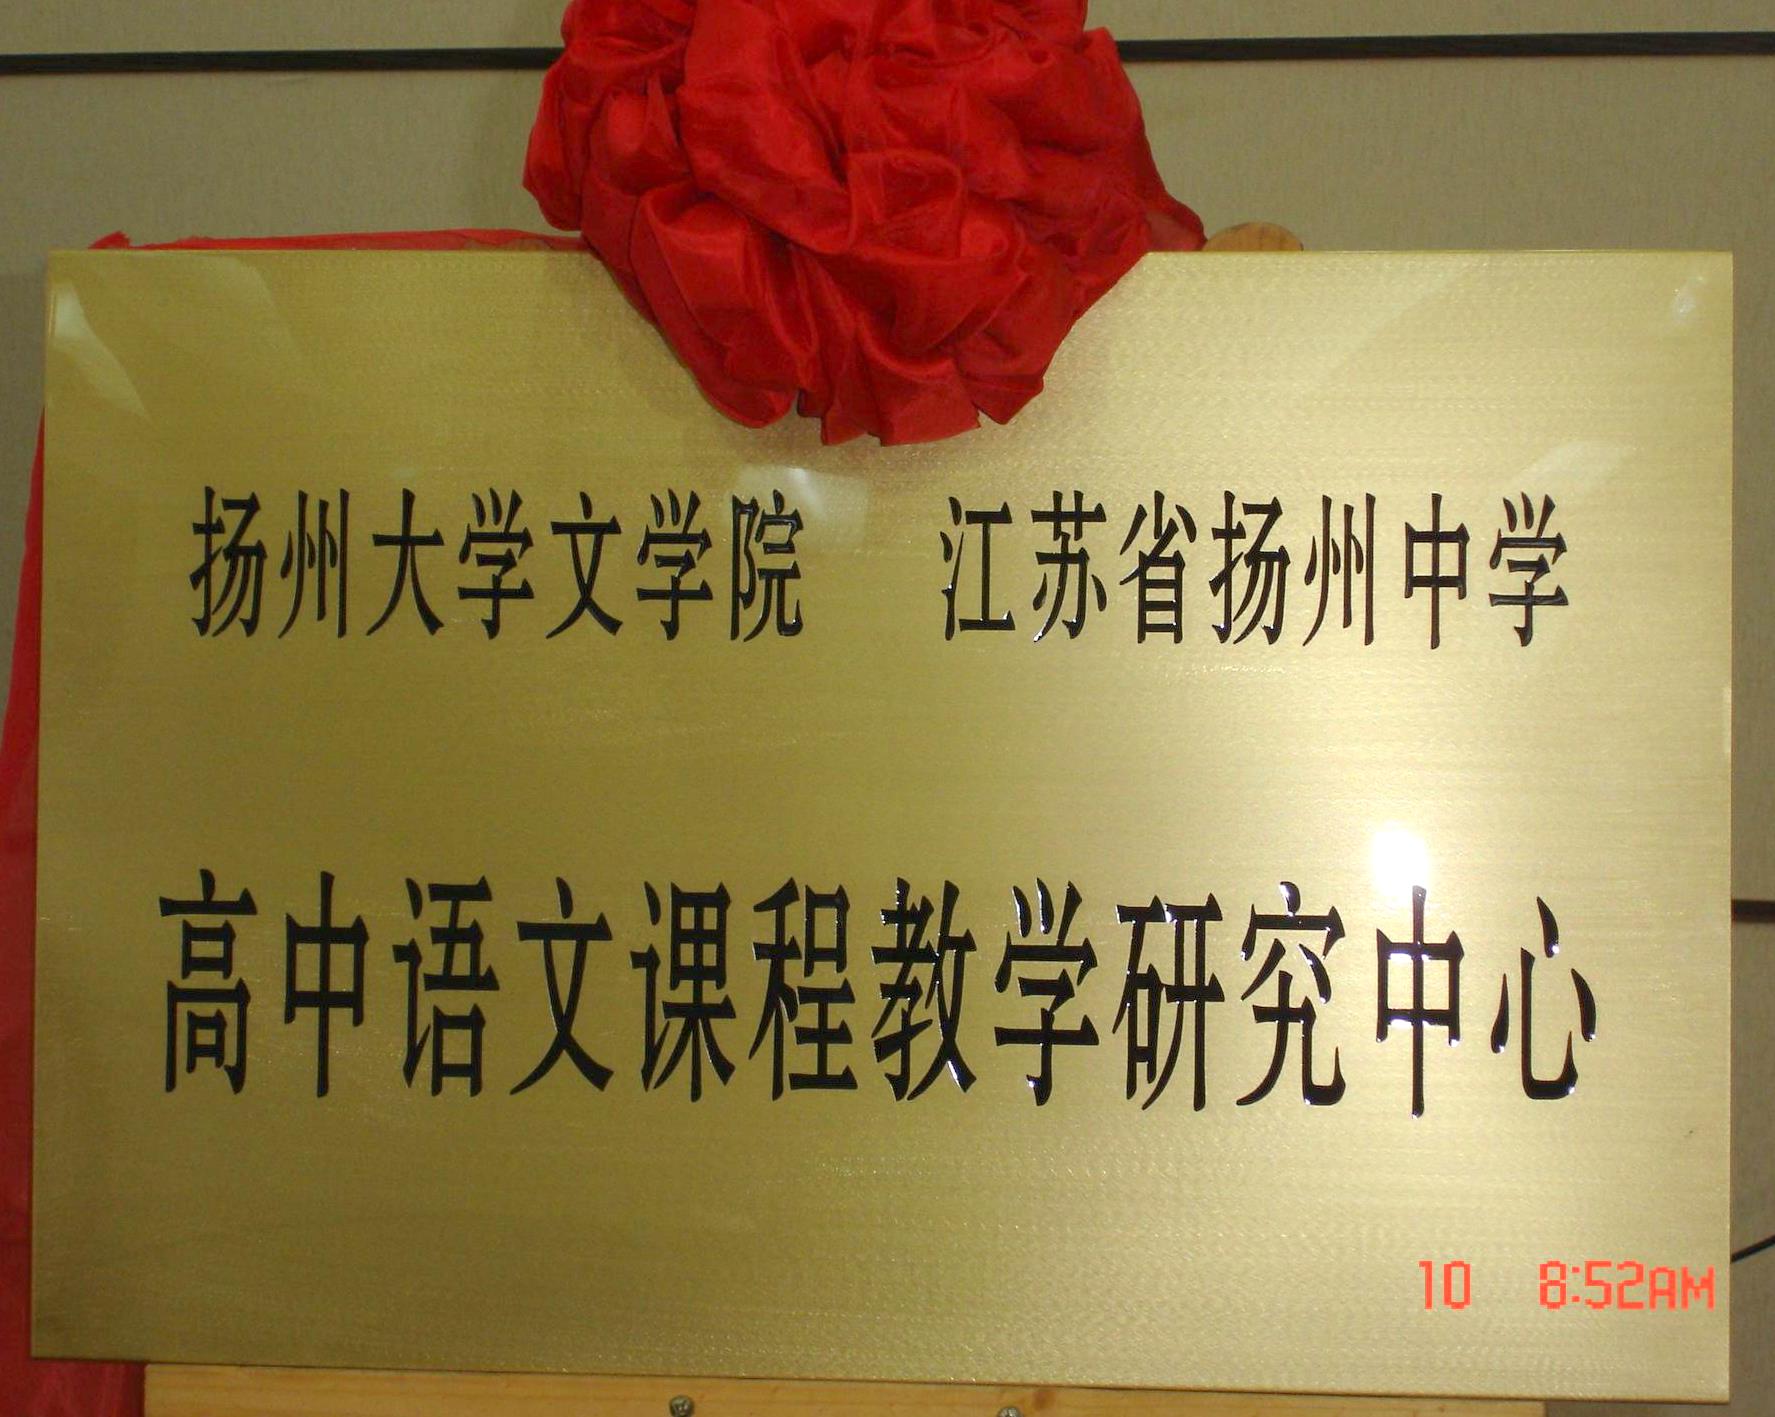 扬州大学文学院 江苏省扬州中学
高中语文课程教学研究中心
10 8:52AM